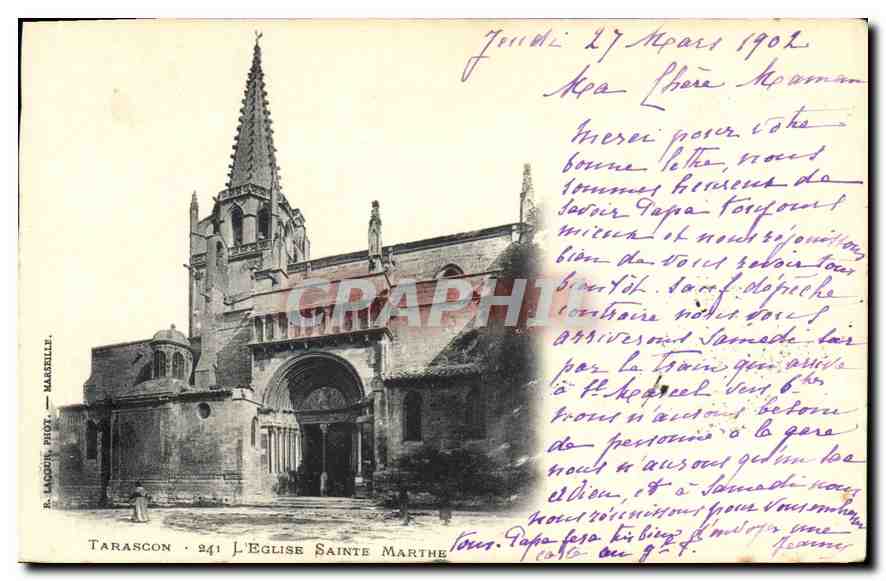 Jeudi 27 Mars 1902
Ma Chère Maman
Merci pour votre
bonne lettre, nous
sommes heureux de
savoir Papa toujours
mieux et nous réjouissons
bien de vous revoir tous
bientôt. Sauf dépêche
contraire nous vous
arriverons Samedi soir
par le train qui arrive
à St. Marcel vers 6 hes
nous n'aurons besoin
de personne à la gare
nous n'aurons qu'un sac
et à Samedi nous
nous réunissons pour vous embrasser
tous. Papa fera très bien d'envoyer une
carte au
Jeanny
CARTE PHILA
R. LACOUR, PHOT. — MARSEILLE.
TARASCON - 241 L'EGLISE SAINTE MARTHE